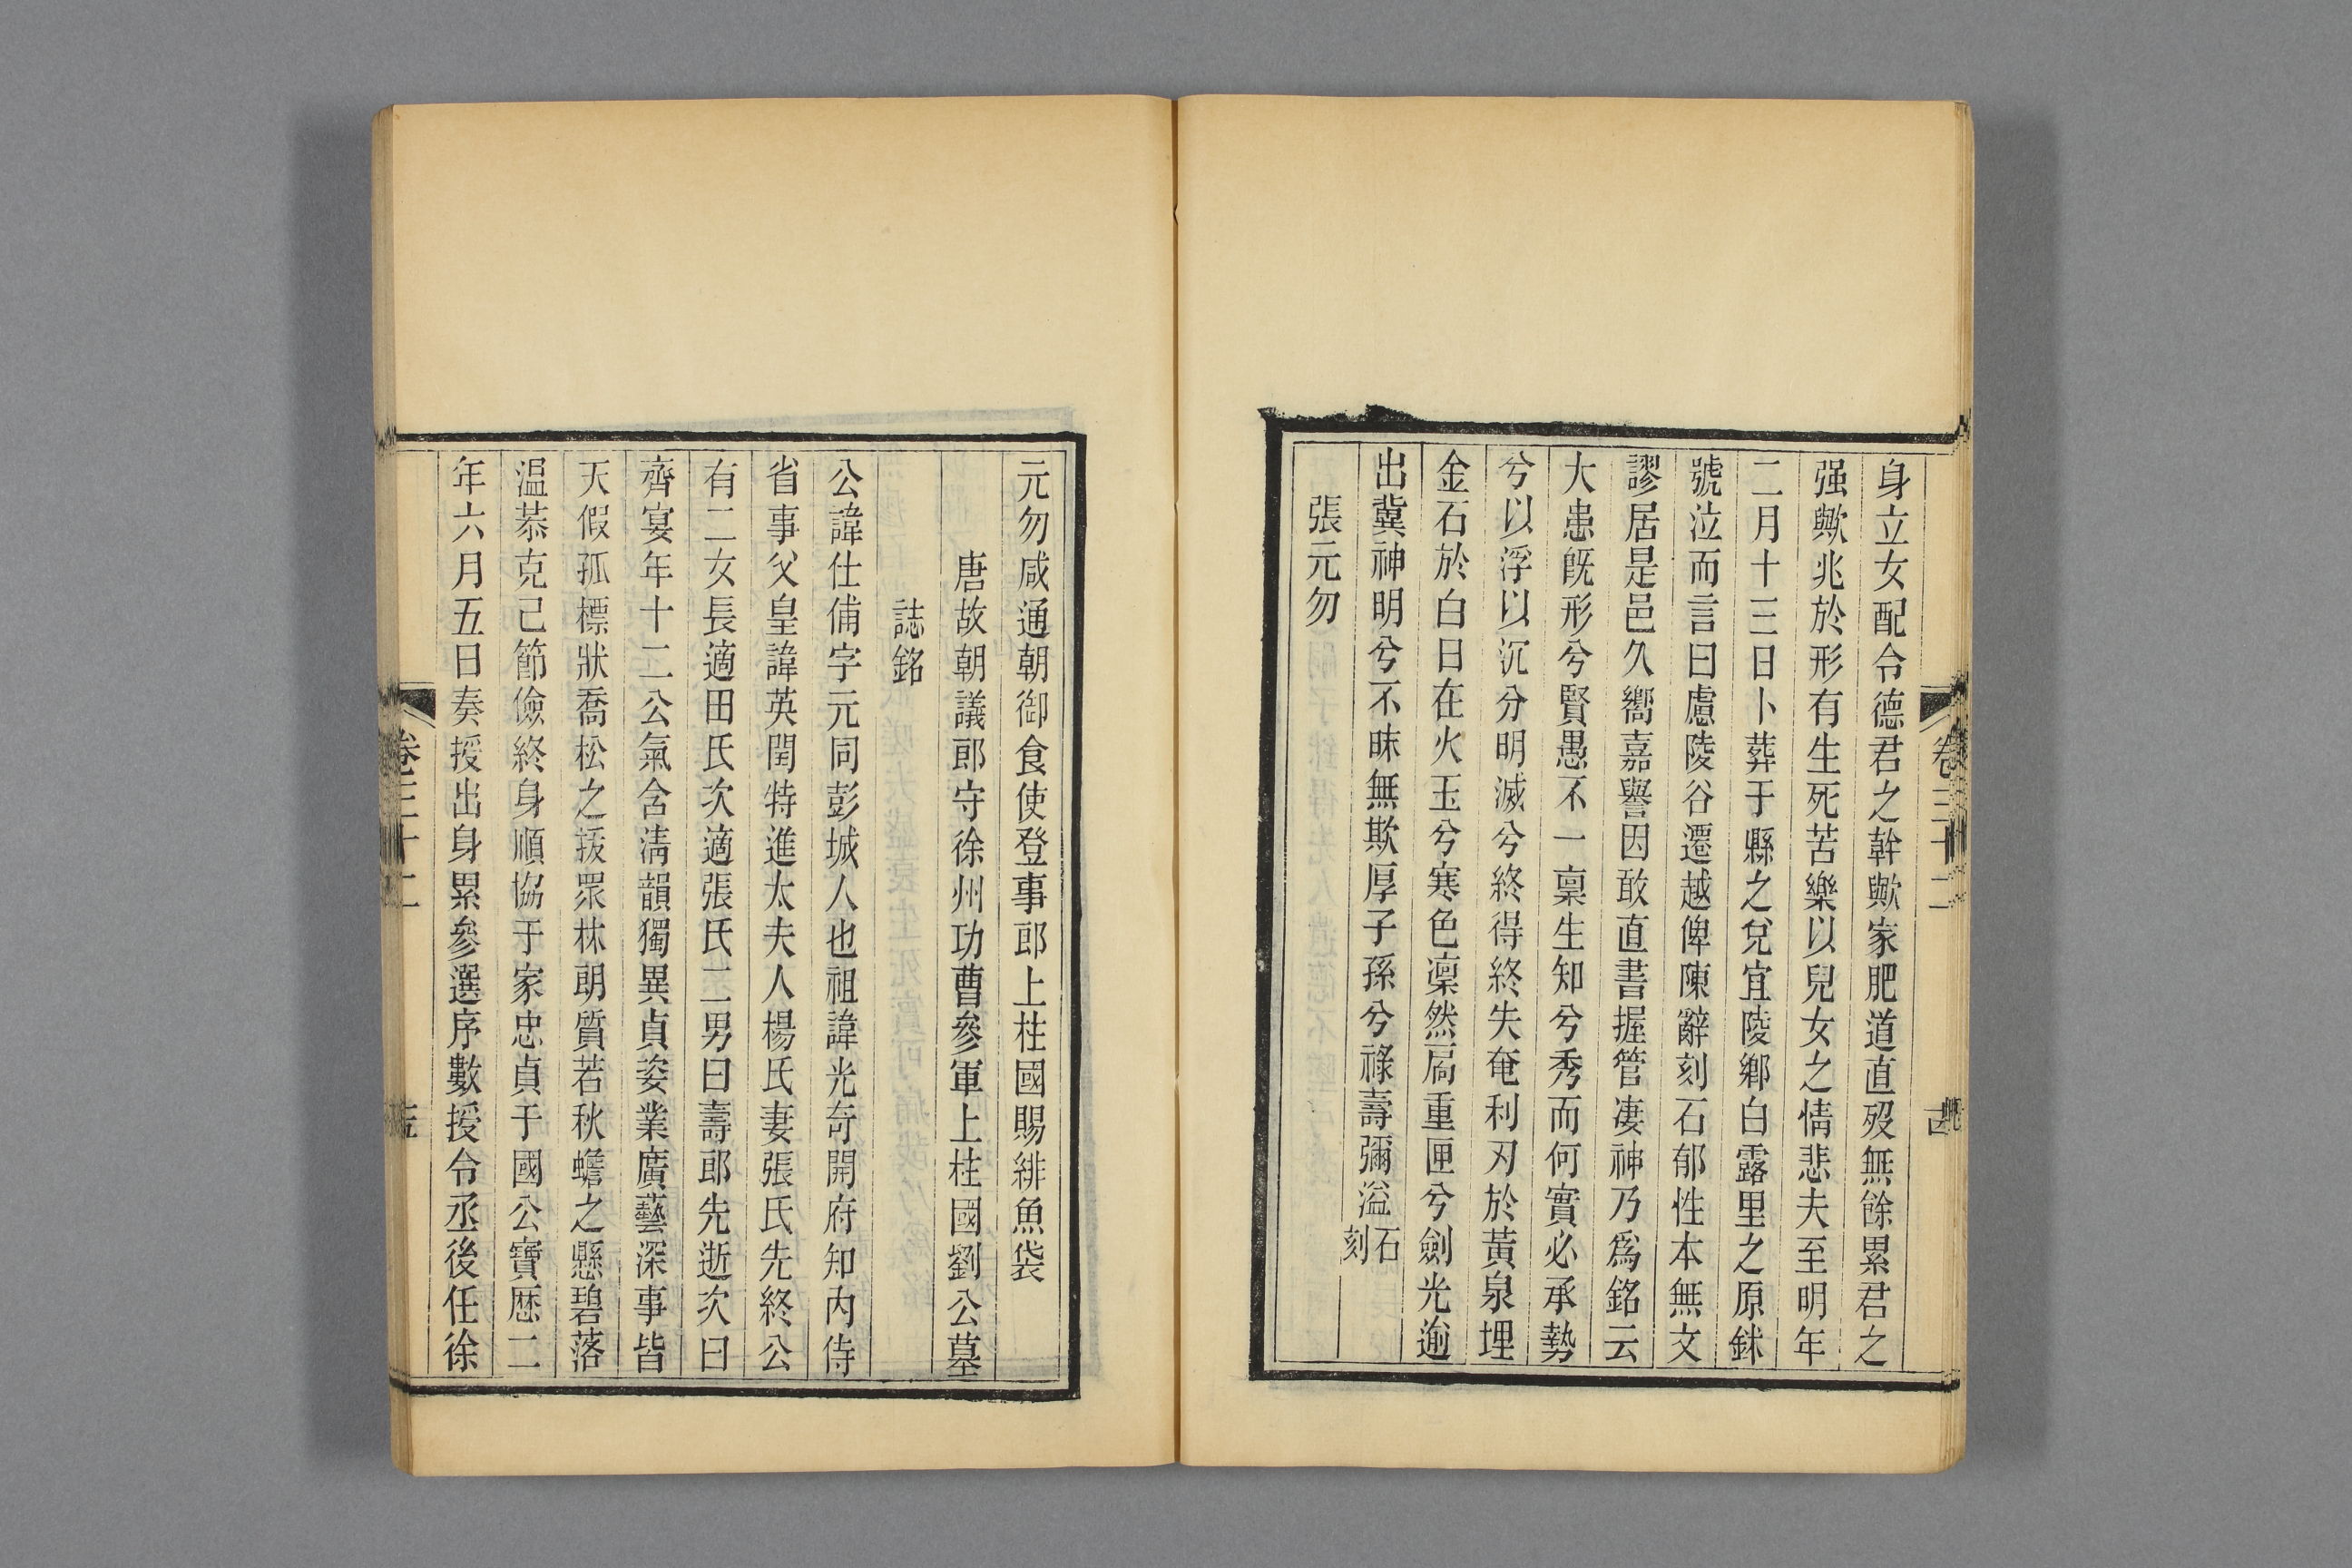 身立女配令德君之幹歟家肥道直歿無餘累君之
强歟兆於形有生死苦樂以兒女之情悲夫至明年
二月十三日卜葬于縣之兌宜陵鄉白露里之原銤
號泣而言曰慮陵谷遷越俾陳辭刻石郁性本無文
謬居是邑久嚮嘉譽因敢直書握管凄神乃爲銘云
大患旣形兮賢愚不一稟生知兮秀而何實必承勢
兮以浮以沉分明滅兮終得終失奄利刃於黃泉埋
金石於白日在火玉兮寒色凜然扃重匣兮劍光逾
出冀神明兮不昧無欺厚子孫兮祿壽彌溢石刻
張元勿
卷三十二
元勿咸通朝御食使登事郎上柱國賜緋魚袋
唐故朝議郎守徐州功曹參軍上柱國劉公墓
誌銘
公諱仕俌字元同彭城人也祖諱光奇開府知内侍
省事父皇諱英閏特進太夫人楊氏妻張氏先終公
有二女長適田氏次適張氏二男曰壽郎先逝次曰
齊宴年十二公氣含淸韻獨異貞姿業廣藝深事皆
天假孤標狀喬松之拔眾林朗質若秋蟾之懸碧落
温恭克己節儉終身順協于家忠貞于國公寶歷二
年六月五日奏授出身累參選序數授令丞後任徐
卷三十二